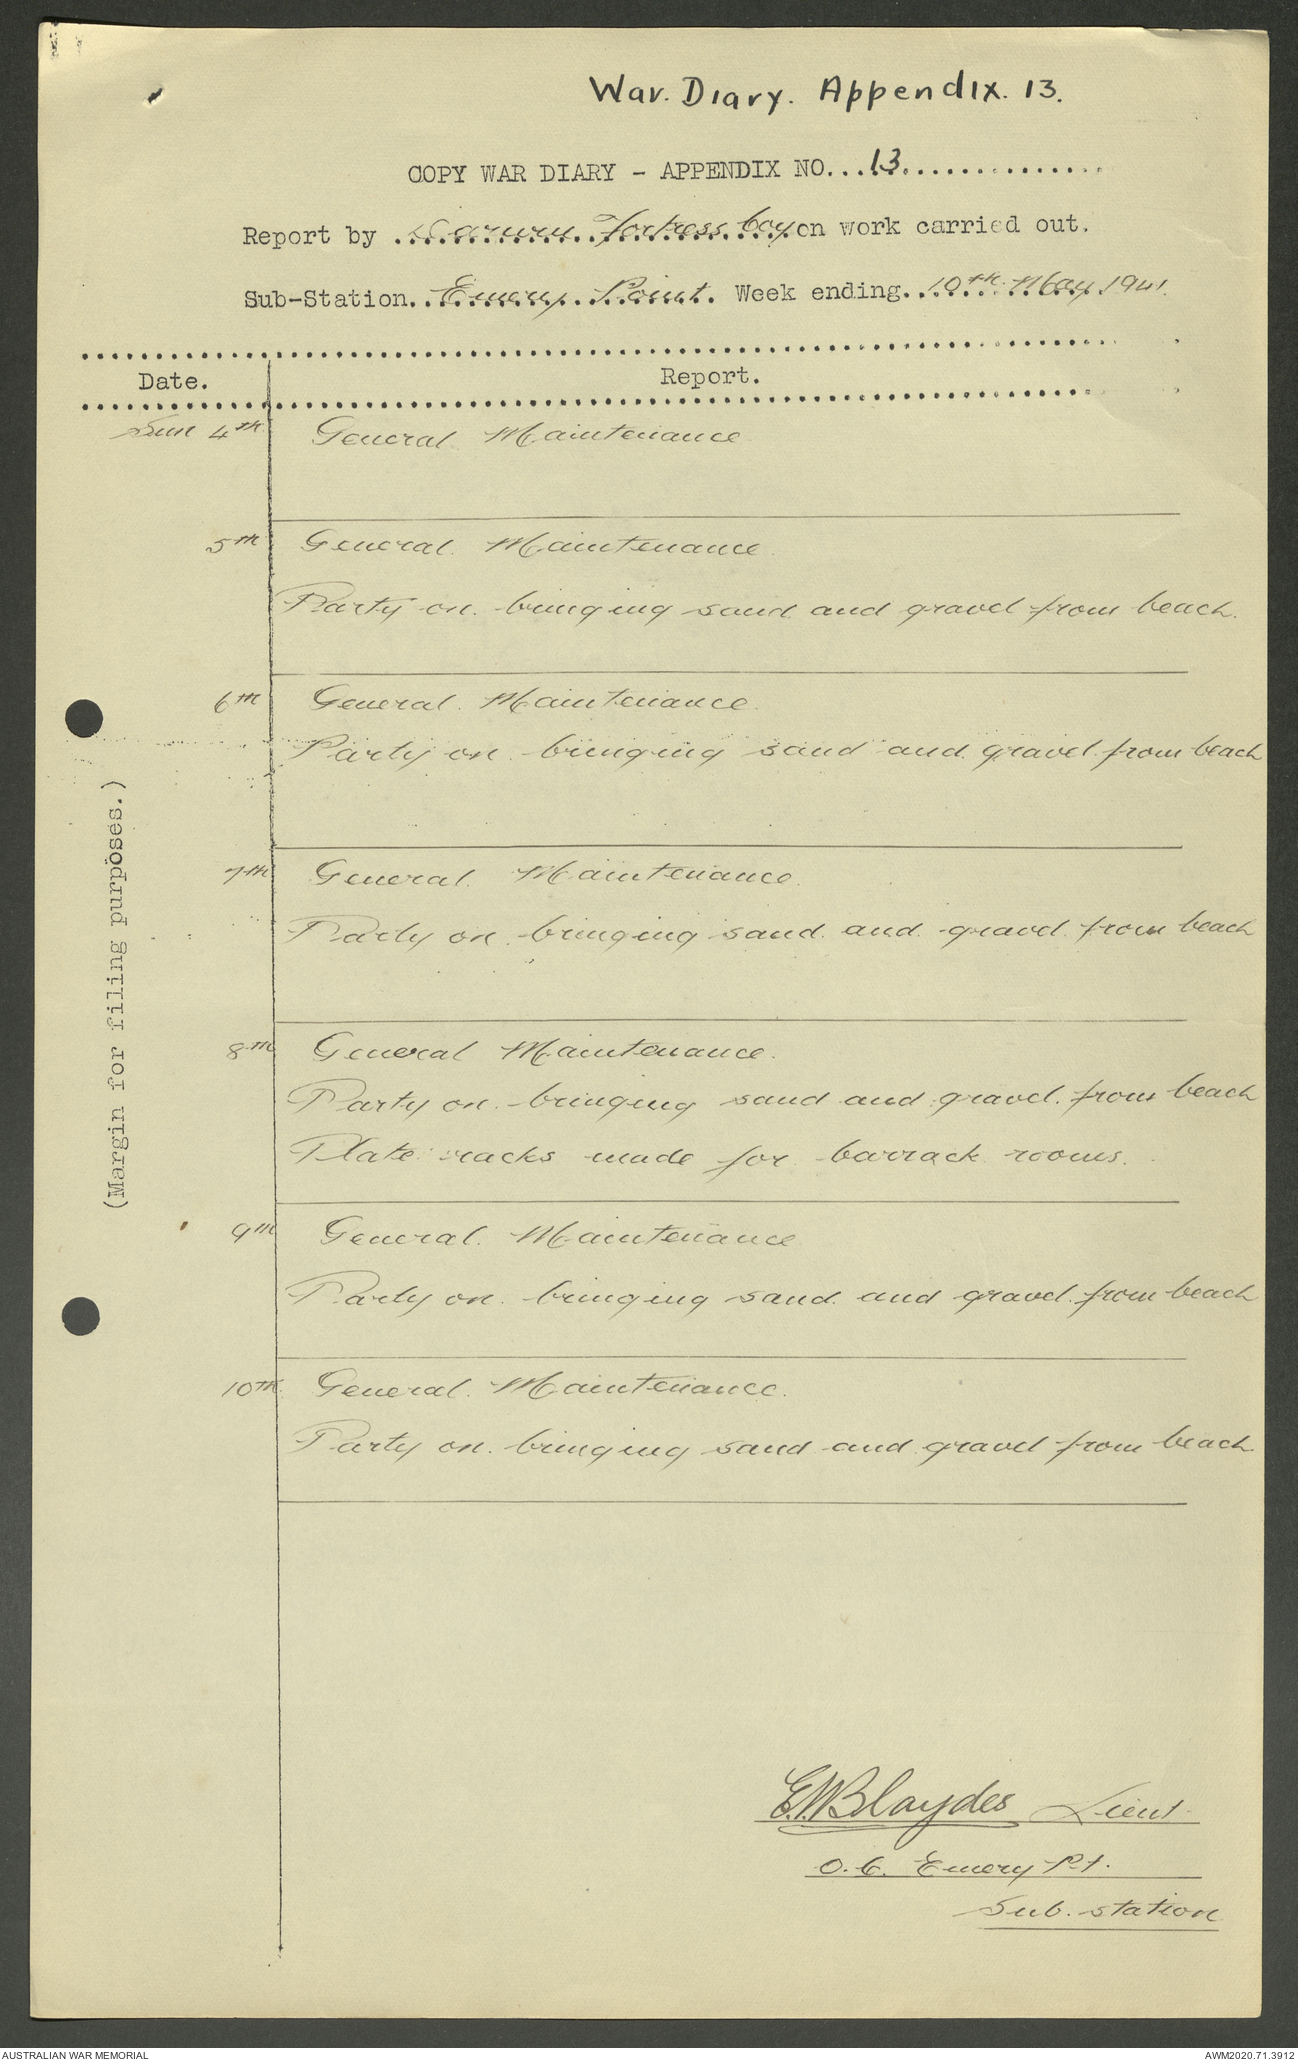 War. Diary. Appendix. 13.
COPY WAR DIARY - APPENDIX NO...13...............
Report by ... Fortress Coy on work carried out.
Sub-Station..Emery Point. Week ending..10th May 1941.
Date. Report.
Sun 4th General Maintenance
5th General Maintenance.
Party on bringing sand and gravel from beach.
6th General Maintenance.
Party on bringing sand and gravel from beach
7th General Maintenance.
Party on bringing sand and gravel from beach
8th General Maintenance.
Party on bringing sand and gravel from beach
Plate racks made for barrack rooms.
9th General Maintenance
Party on bringing sand and gravel from beach
10th General Maintenance.
Party on bringing sand and gravel from beach
(Margin for filing purposes.)
Blaydes Lieut.
O.C. Emery Pt.
Sub. station
AUSTRALIAN WAR MEMORIAL
AWM2020.71.3912